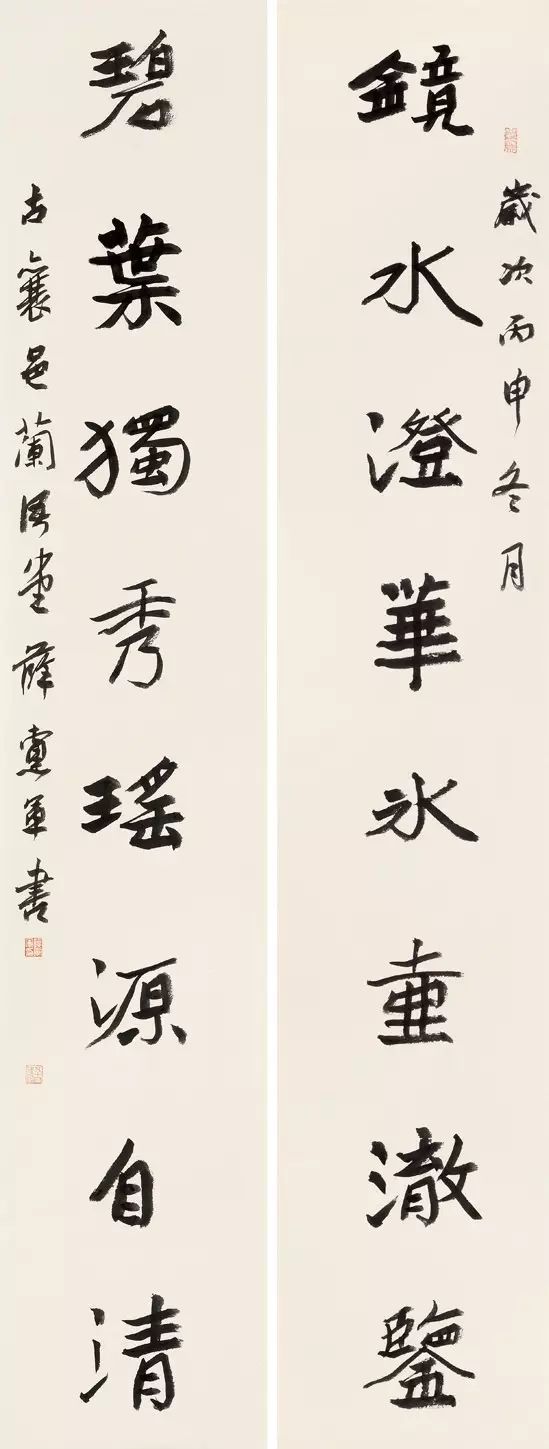 歲次丙申冬月
鏡水澄華氷壺澈鑒
碧葉獨秀瑤源自清
古襄邑蘭堂薛軍書